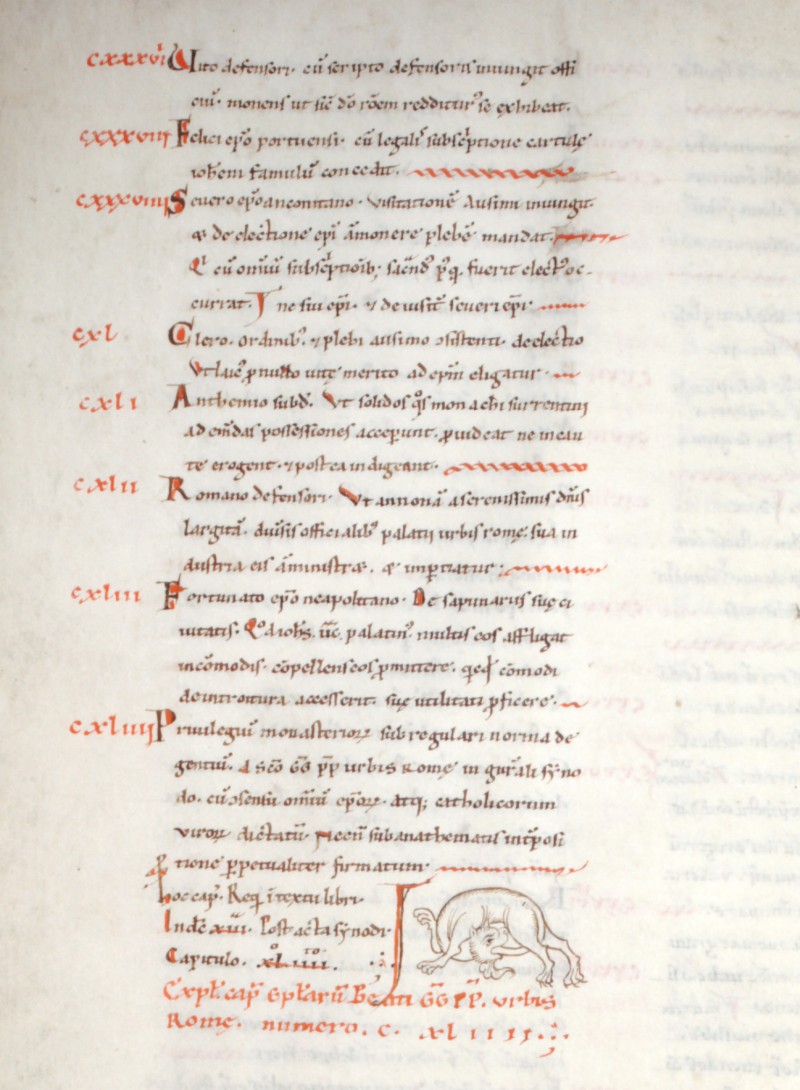 cxxxvi Vito defensori. cū scripto defensoris iniungit offi
ciū. monens ut siē dō rōem redditur' se exhibeat.
cxxxviii Felici epō portuensi. cū legali' subscptione cartulę
iohem famulū concedit.
cxxxviiii Severo epō anconitano. visitationē Ausimi iniungit.
& de electione epi āmonere plebē mandat.
Et cū omniū subscptioib; fuerit elect' oc-
currat. ne sui epi. & de visit' seueri epi.
cxl Clero. ordinib' & plebi ausimo osistenti. de electio
Vt laic' p nullo uitę merito ad epm eligatur.
cxli Anthemio subd. Vt solidos q's monachi surrentini
ad em̄das possessiones accepunt. puideat ne incau
te erogent. & postea indigeant.
cxlii Romano defensori. Vt annonā a serenissimis dn̄is
largitā. diu'sis officialib' palatii urbis romę. sua in
dustria eis āministr&. & impertiatur.
cxliii Fortunato epō neapolitano. De saponariis suę ci
uitatis. Qd ioh's. uic. palatin' multis eos affligat
incōmodis. copellens eos pmittere. qcqd cōmodi
de introitura accesserit. suę utilitati pficere.
cxliiii Priuilegiū monasterioꝝ sub regulari norma de
gentiū. A sco GG pp urbis Romę in gn̄rali syno
do. cū osensu omniū epoꝝ. atq; catholicorum
viroꝝ dictatū. necn̄ sub anathematis intposi
tione ppetualiter firmatum.
hoc cap. Req. i textu libri.
Indic xiiii. Post acta synodi.
Capitulo. xliiii.
Expt cap eptarū Beati GG PP. urbis
Romę. numero. c. xliiii.